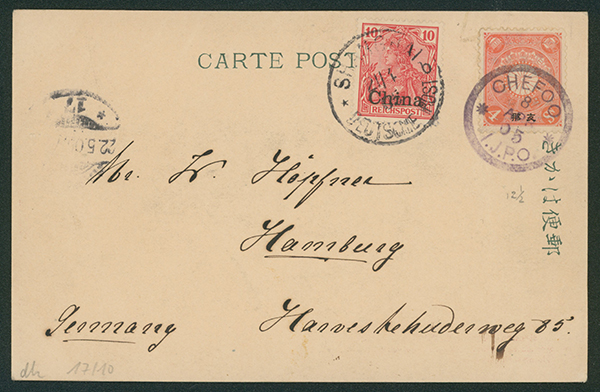 CARTE POST
10 10
China
REICHSPOST
SHANGHAI
DEUTSCHE POST
CHEFOO
8
05
I.J.P.O.
支那
きかは便郵
17
22.5.0
12½
Mr. W. Höpfner
Hamburg
Germany
Harvestehuderweg 85.
17/10